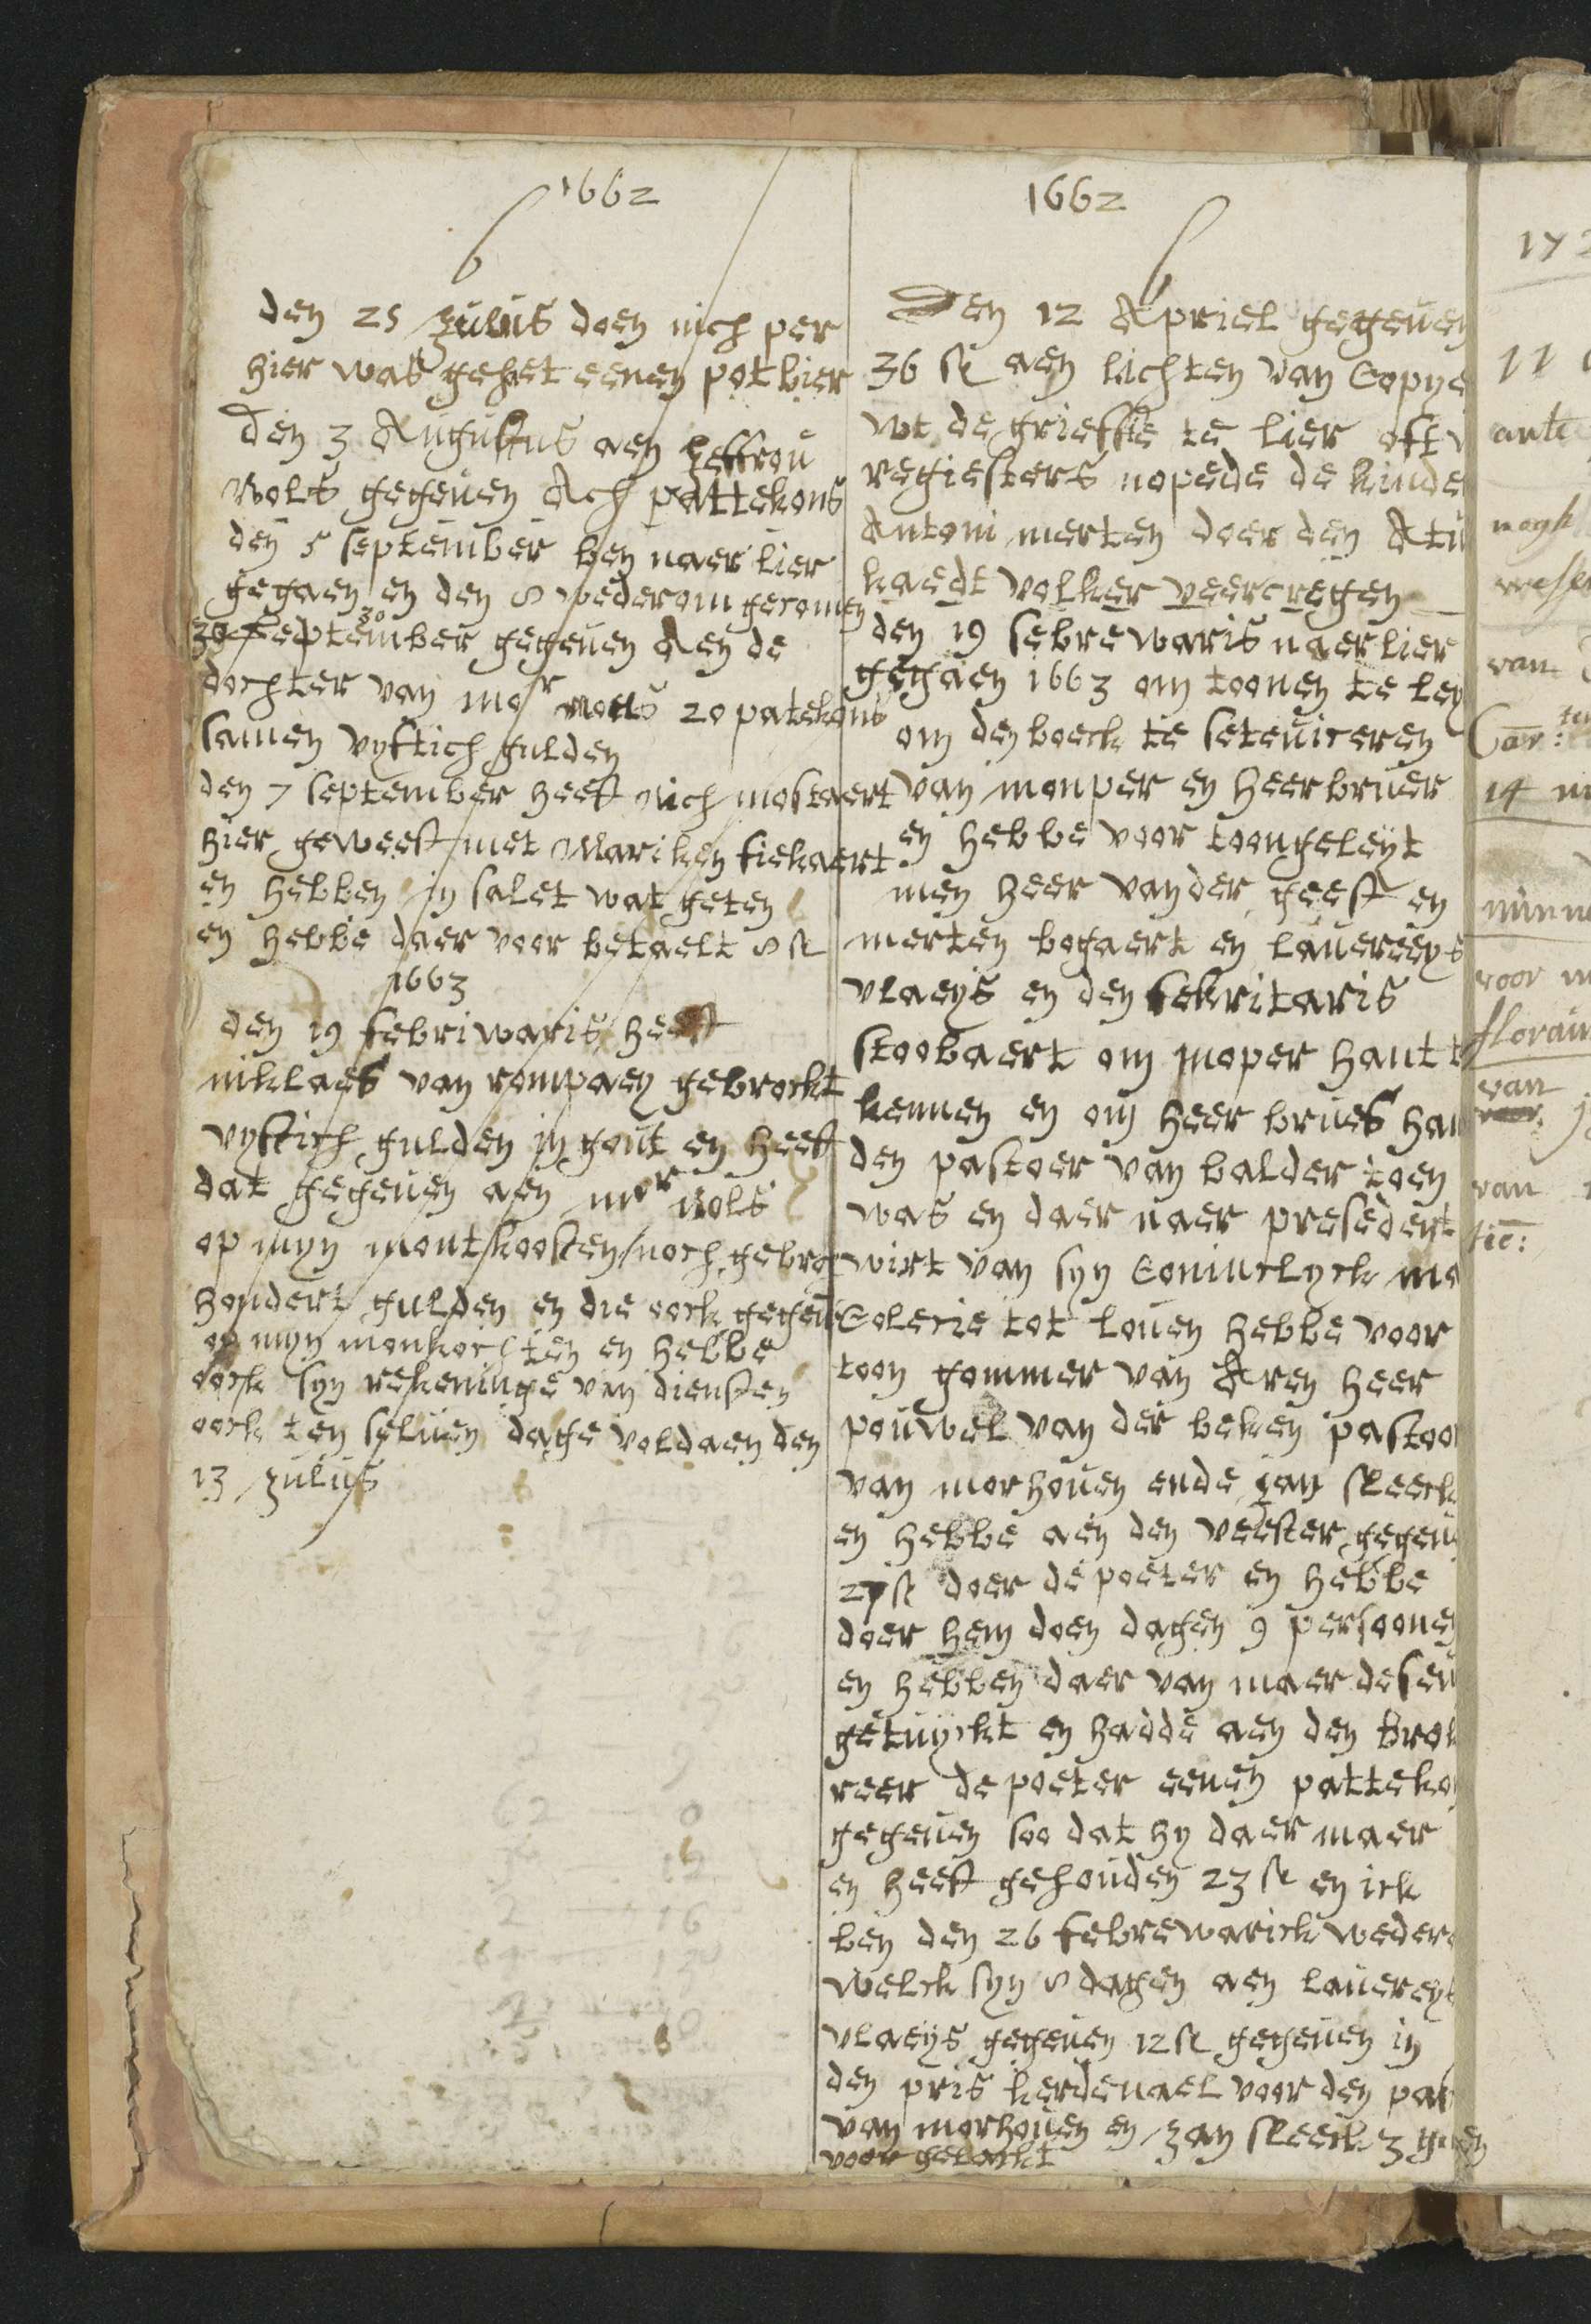 1662
den 25 Julius doen mich per
hier was gehet eenen pot bier
den 3 Augustus aen
Nols gegeven Ach pattekons
den 5 september ben naer lier
gegaen en den 8 wederom gecomen
30
30 september gegeven Aen de
dochter van mor Nols 20 patekons
samen vyftich gulden
den 7 september heeft Mich mostaert
hier geweest met Mariken fiekaert
en hebben in salet wat geten
en hebbe daer voor betaelt 8 st
1663
den 19 febriwaris heeft
niklaes van rompaey gebrockt
vyftich gulden in gout en heeft
dat gegeven aen mor Nols
op myn montkoosten noch gebro
hondert gulden en die oock gegev
op myn monkochten en hebbe
oock syn rekeninge van diensten
oock ten selven dage voldaen den
13 Julius
1662
Den 12 Apriel gegeven
36 st aen lichten van Copye
wt de grieffie te lier oft
regiesters nopede de kinde
Antoni merten doer den Atu
kaedt volker veercregen
den 19 febrewaris naer lier
gegaen 1663 om toonen te ley
om den boeck te
van monper en heer bruer
en hebbe voor toon geleyt
men heer vander geest en
merten bogaert en lauereeys
vlaeys en den sekritaris
stoobaert om moper hant t
kennen en om heer brues han
den pastoer van balder toen
was en daer naer president
wirt van syn Coninclyck
Colecie tot loven hebbe voor
toon gommer van Aren heer
pouwel van der beken pastoor
van morhoven ende Jan sleeck
en hebbe aen den veester gegev
27 st doer de poeter en hebbe
doer hem doen dagen 9 persoonen
en hebben daer van maer deseu
getuyckt en hadde aen den prok
reer de poeter eenen patteko
gegeven soo dat hy daer maer
en heeft gehouden 23 st en ick
ben den 26 febrewarick wedero
welck syn 8 dagen aen lauereys
vlaeys gegeven 12 st gegeven in
den pris kerdenael voor den pas
van morhoven en Jan sleeck 3
voor gelackt
17
11
arte
nogh
wesen
van
14
minne
voor
floraini
van
van
tie: